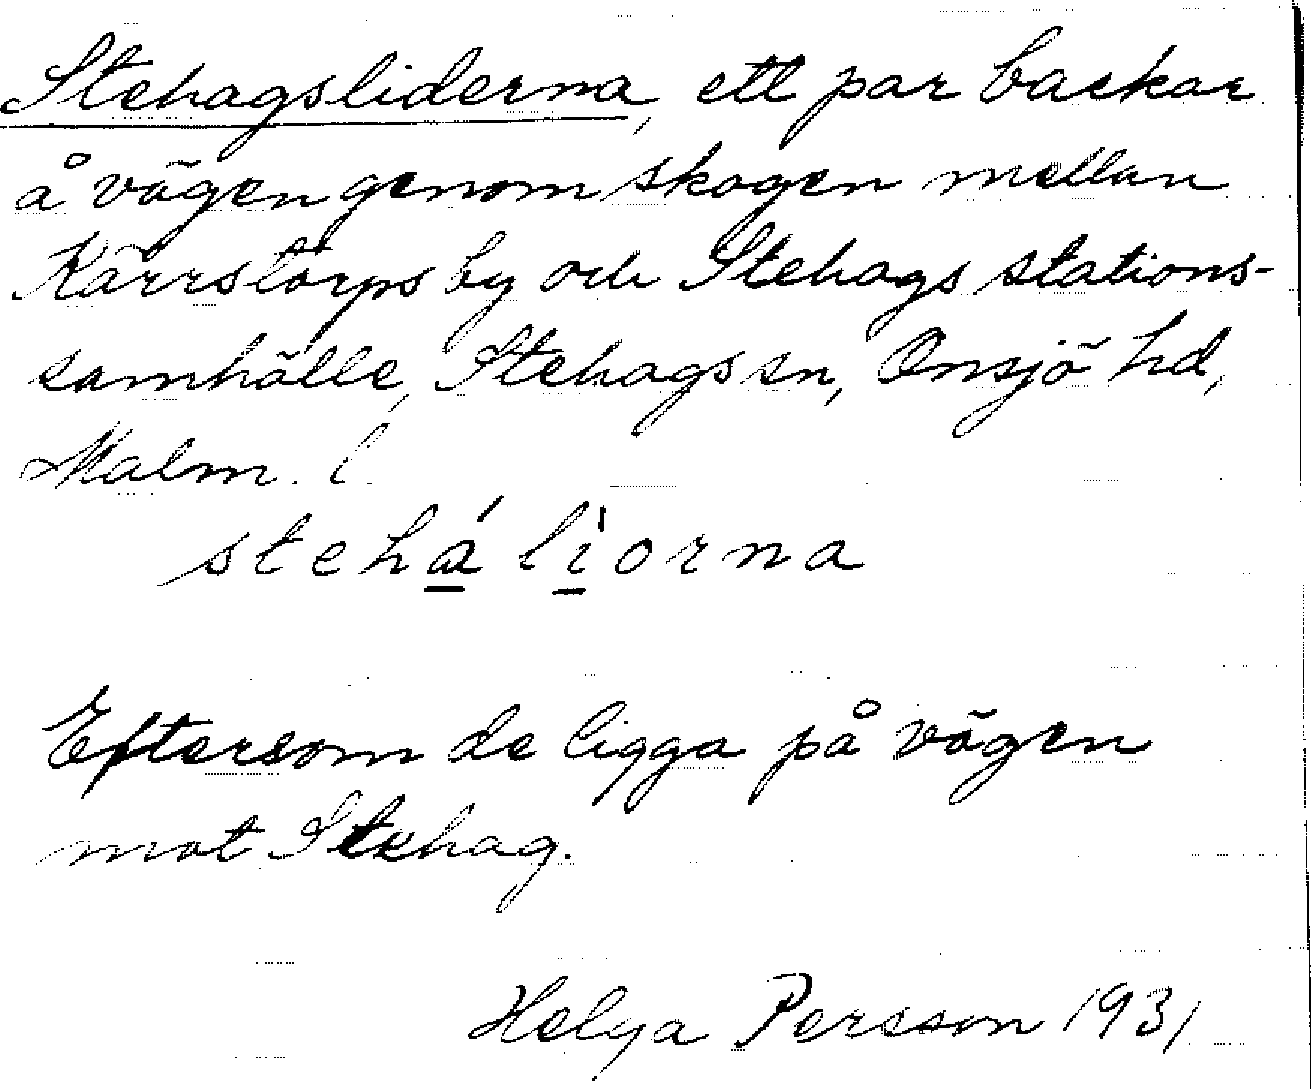 Stehagsliderna, ett par backar
å vägen genom skogen mellan
Kärrstorps by och Stehags stations-
samhälle, Stehags sn, Onsjö hd,
Malm. l.
stehá líorna
Eftersom de ligga på vägen
mot Stehag.
Helga Persson 1931